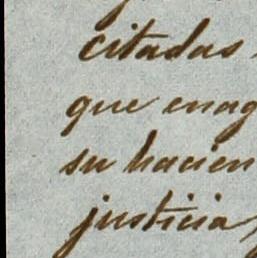 citadas
que enag
su hacien
justicia,